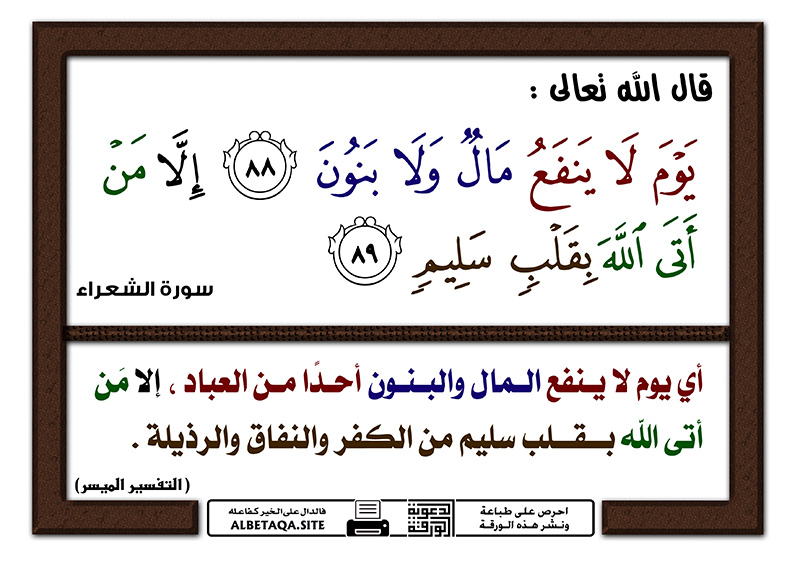 قال الله تعالى :
يَوْمَ لَا يَنفَعُ مَالٌ وَلَا بَنُونَ ٨٨ إِلَّا مَنْ
أَتَى ٱللَّهَ بِقَلْبٍ سَلِيمٍ ٨٩
سورة الشعراء
أي يوم لا ينفع المال والبنون أحدًا من العباد ، إلا مَن
أتى الله بقلب سليم من الكفر والنفاق والرذيلة .
(التفسير الميسر)
احرص على طباعة
ونشر هذه الورقة
الورقة
الدعوية
فالدال على الخير كفاعله
ALBETAQA.SITE